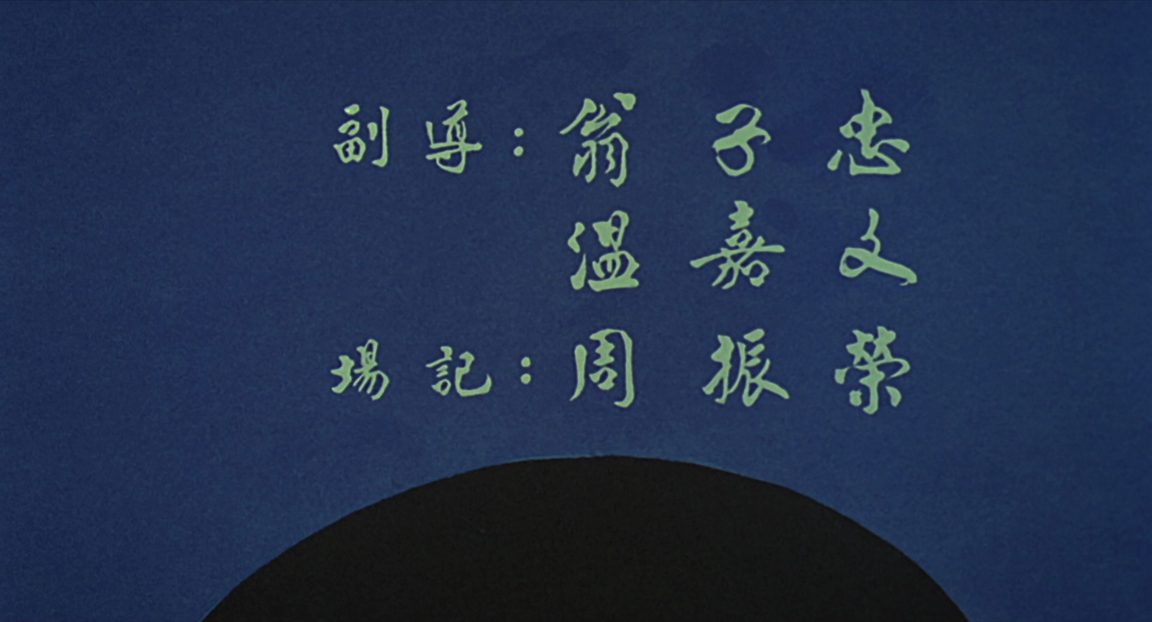 副導：翁子忠
溫嘉文
場記：周振榮